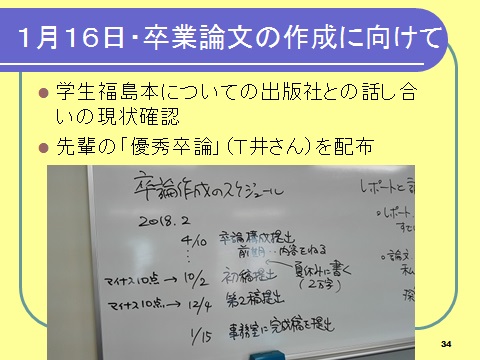 1月16日・卒業論文の作成に向けて
● 学生福島本についての出版社との話し合
いの現状確認
● 先輩の「優秀卒論」(T井さん)を配布
卒論作成のスケジュール
2018.2
4/10 卒論構成提出
前期…内容をねる
夏休みに書く
(2万字)
マイナス10点 → 10/2 初稿提出
マイナス10点 → 12/4 第2稿提出
1/15 事務室に完成稿を提出
レポートと
・レポート
・論文
34